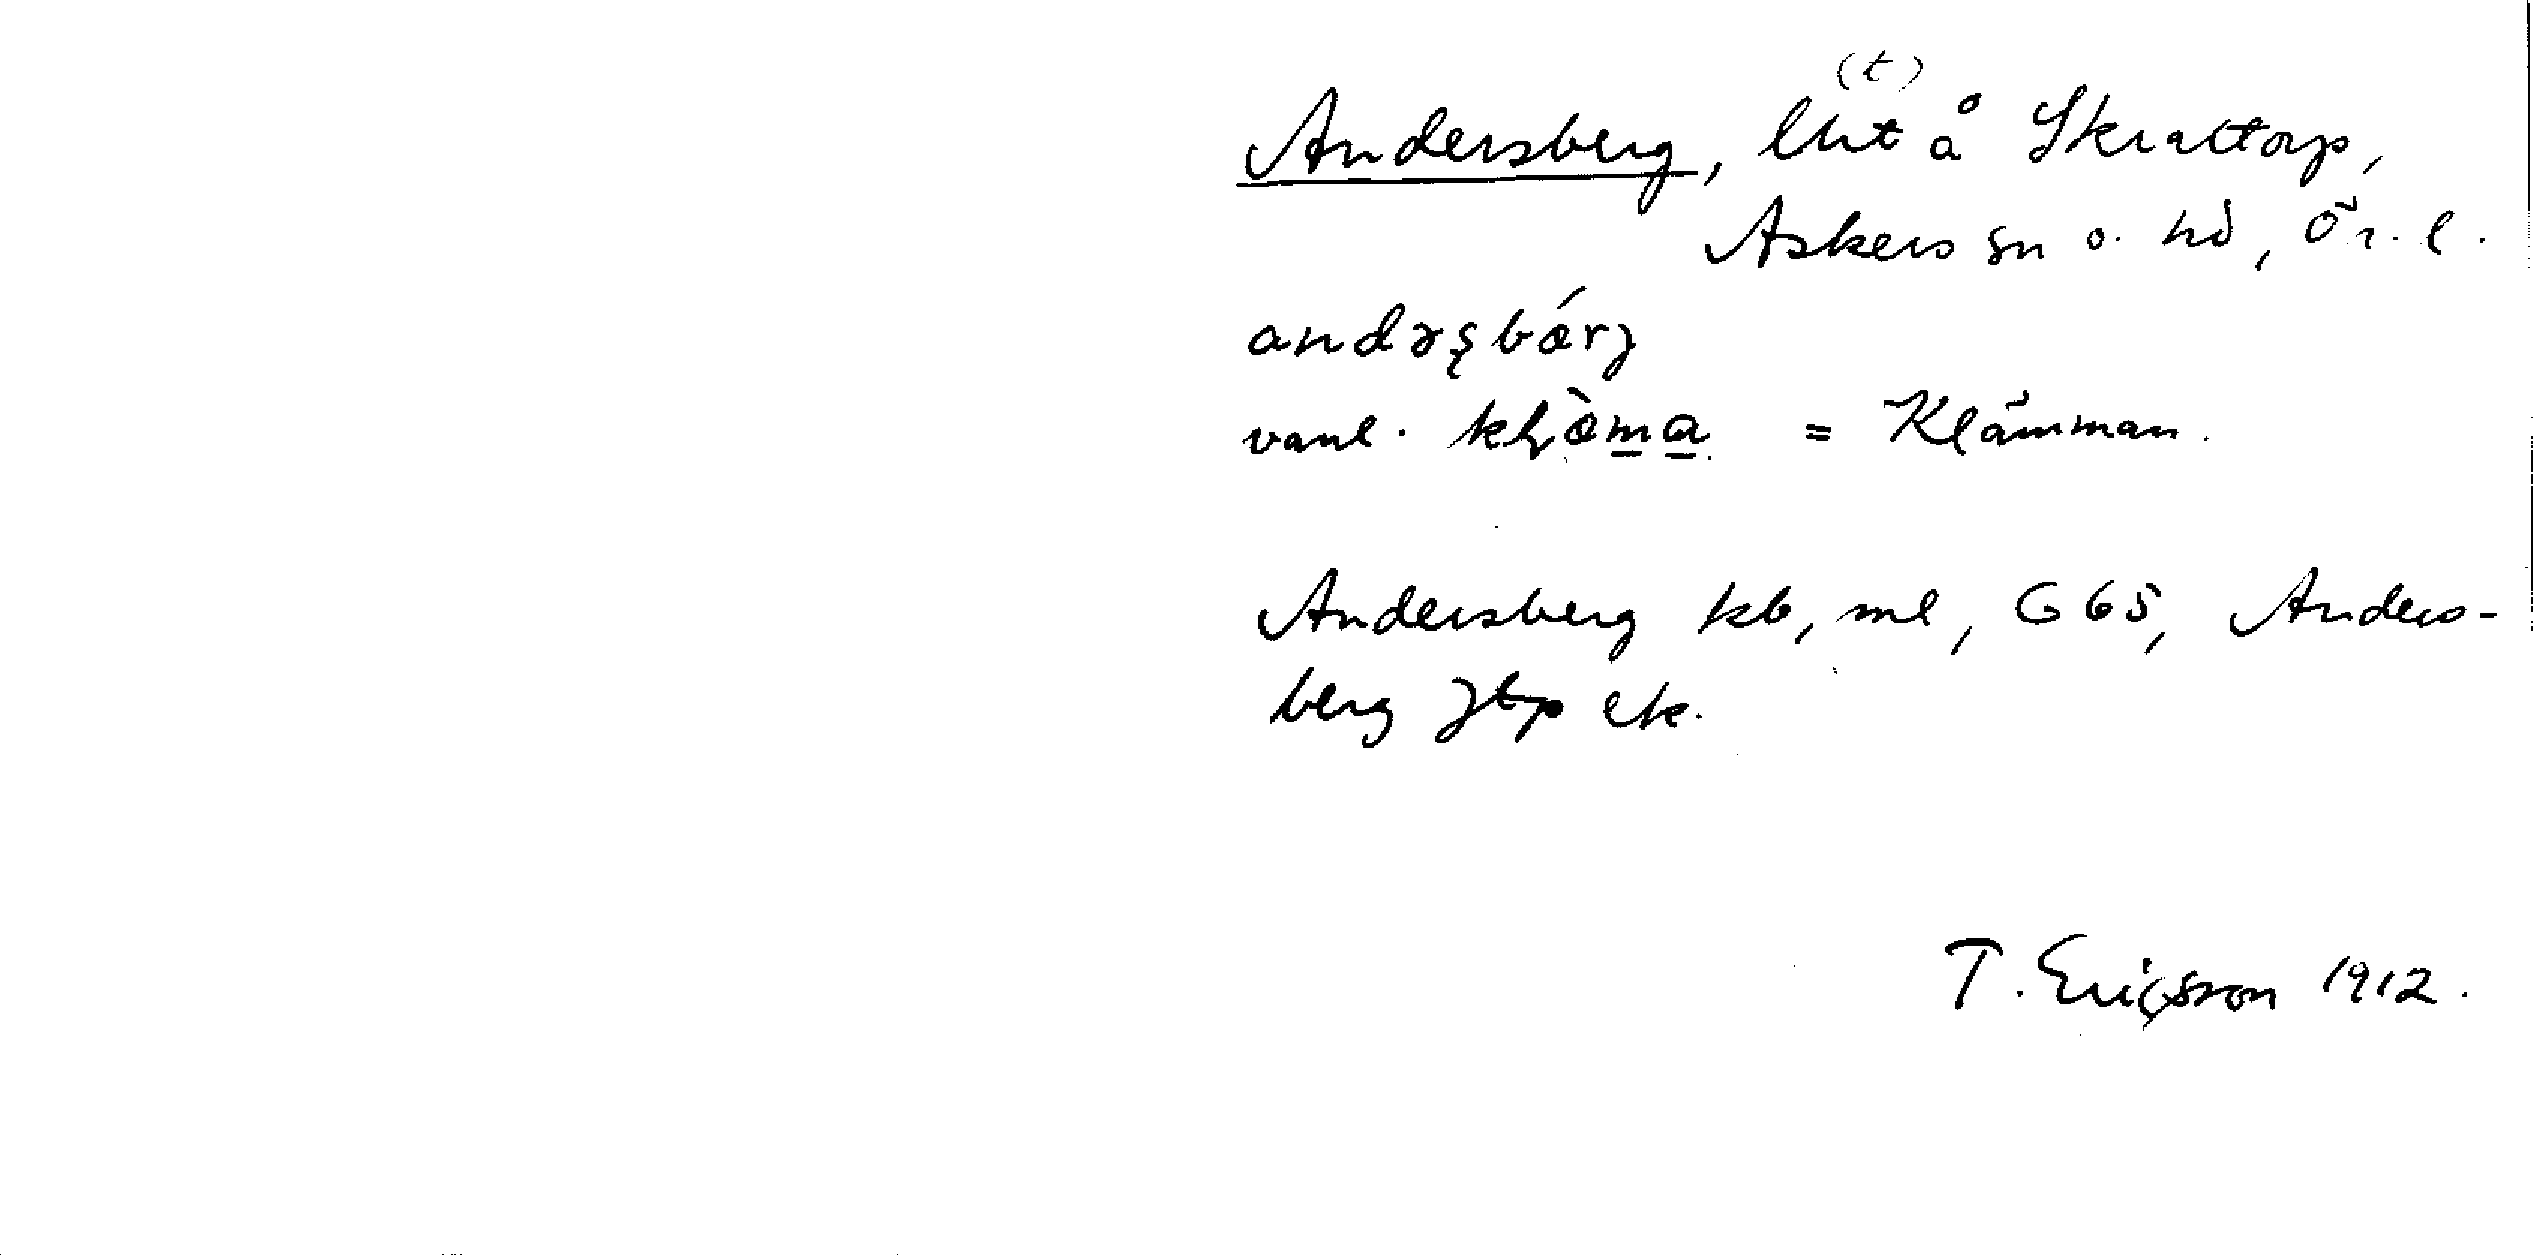 (t)
Andersberg, lht å Skrattorp,
Askers sn o. hd, Ör. l.
andərşbærj
vanl. = Klämman.
Andersberg kb, ml, G 65, Anders-
berg jbp ek.
T. Ericsson 1912.